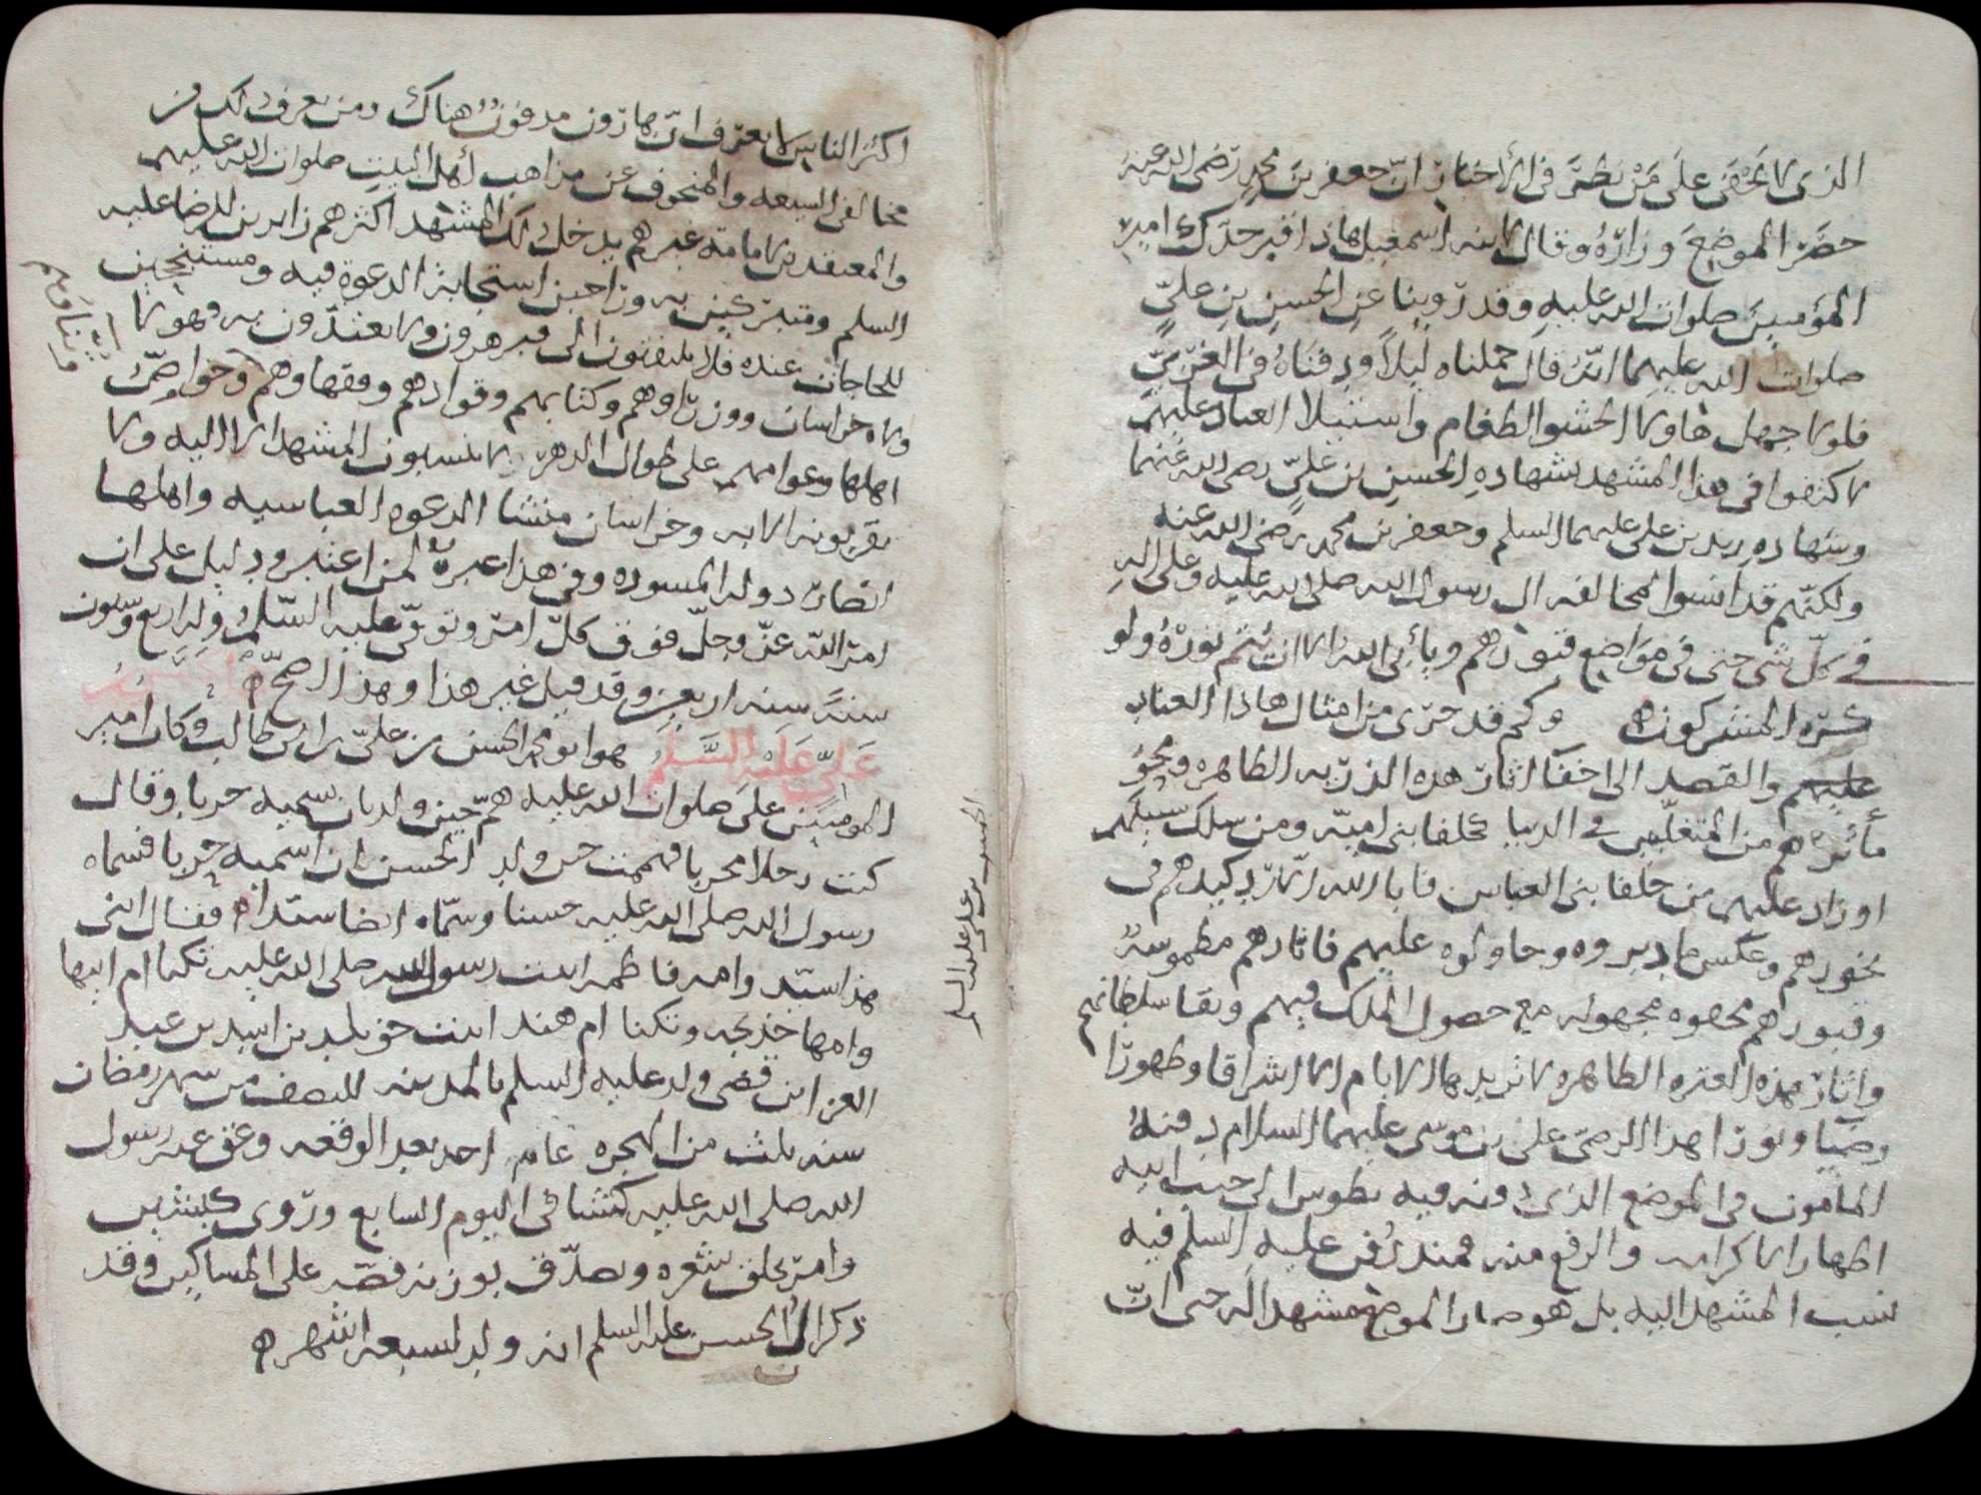 الذى لا يخفى على من نظر فى الأخبار ان جعفر بن محمد رضى الله عنه
حضر الموضع وزاره وقال لابنه اسمعيل هاذا قبر جدك امير
المؤمنين صلوات الله عليه وقد روينا عن الحسن بن علي
صلوات الله عليهما انه قال حملناه ليلاً ودفناه فى الغريين
فلولا جهل هاولا الحشو الطغام واستيلا العناد عليهم
لاكتفوا فى هذا المشهد بشهاده الحسن بن علي رضى الله عنهما
وشهاده زيد بن على عليهما السلم وجعفر بن محمد رضى الله عنه
ولكنهم قد انسوا لمخالفه ال رسول الله صلى الله عليه وعلى اله
فى كل شى حتى فى مواضع قبورهم ويأبى الله الا ان يتم نوره ولو
كره المشركون ه وكم قد جرى من امثال هاذا العناد
عليهم والقصد الى اخفا اثار هذه الذريه الطاهره ومحو
مأثرهم من المتغلبين فى الدنيا كخلفا بنى اميه ومن سلك سبيلهم
اوزاد عليهم من خلفا بنى العباس فابا الله الا رد كيدهم فى
نحورهم وعكس ما دبروه وحاولوه عليهم فاثارهم مطموسة
وقبورهم ممحوه مجهوله مع حصول الملك فيهم وبقا سلطانهم
واثار هذه العتره الطاهره لا تزيدها الايام الا اشراقا وظهورا
وضيا ونورا هذا الرضى على بن موسى عليهما السلام دفنه
المامون فى الموضع الذى دفنه فيه بطوس الى جنب ابيه
اظهارا لاكرامه والرفع منه فمنذ دفن عليه السلم فيه
نسب المشهد اليه بل هو صار الموضع مشهدا له حتى ان
اكثر الناس لا يعرف ان هارون مدفون هناك ومن يعرف ذلك من
مخالفى الشيعه والمنحرف عن مذاهب أهل البيت صلوات الله عليهم
والمعتقدين لامامة غيرهم يدخل ذلك المشهد اكثرهم زايرين للرضا عليه
السلم ومتبركين به وراجين استجابة الدعوة فيه ومستنجحين
للحاجات عنده فلا يلتفتون الى قبر هرون ولا يعتدون به وهولا
ولاه خراسان ووزراوهم وكتابهم وقوادهم وفقهاوهم وخواص
اهلها وعوامهم على طوال الدهر لا ينسبون المشهد الا اليه ولا
يقربونه الا به وخراسان منشا الدعوه العباسيه واهلها
انصار دوله المسوده وفى هذا عبرة لمن اعتبر ودليل على ان
امر الله عز وجل فوق كل امر وتوفى عليه السلم وله اربع وستون
سنة سنه اربعين وقد قيل غير هذا وهذا اصح ه الحسن بن
علي عليه السلم هو ابو محمد الحسن بن علي بن ابى طالب وكان امير
المومنين على صلوات الله عليه هم حين ولد بان يسميه حربا وقال
كنت رجلا محربا فهممت حين ولد الحسن ان اسميه حربا فسماه
رسول الله صلى الله عليه حسنا وسماه ايضا سيدا فقال ابنى
هذا سيد وامه فاطمه ابنت رسول الله صلى الله عليه تكنا ام ابيها
وامها خديجه وتكنا ام هند ابنت خويلد بن اسد بن عبد
العزا بن قصى ولد عليه السلم بالمدينه للنصف من شهر رمضان
سنه ثلث من الهجره عام احد بعد الوقعه وعق عنه رسول
الله صلى الله عليه كبشا فى اليوم السابع وروى كبشين
وامر بحلق شعره وتصدق بوزنه فضه على المساكين وقد
ذكر ان الحسن عليه السلم انه ولد لسبعه اشهر ه
الحسن بن على عليه السلم